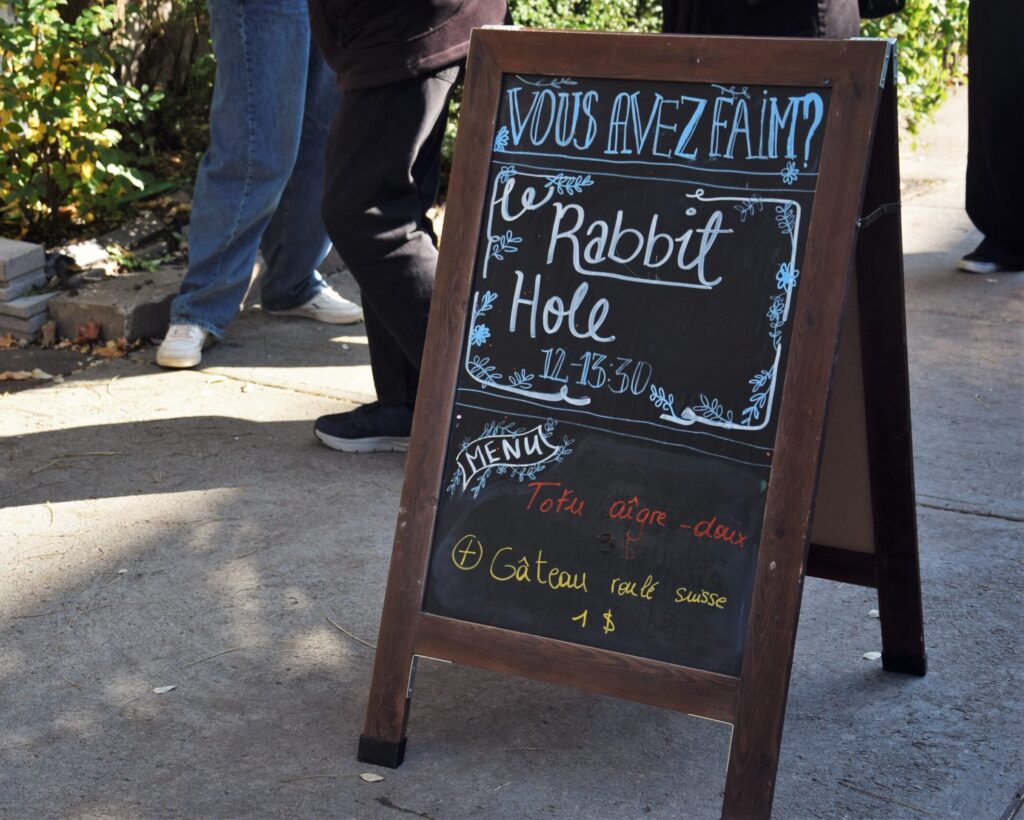 VOUS AVEZ FAIM?
Le Rabbit
Hole
12-13:30
MENU
Tofu aîgre-doux
3 $
+ Gâteau roulé suisse
1 $